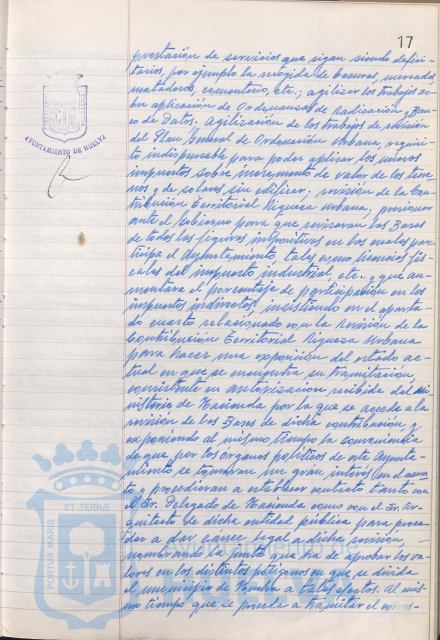 17
prestación de servicios que sigan siendo defici-
tarios, por ejemplo la recogida de basuras, mercados
mataderos, cementerio, etc.; agilizar los trabajos so-
bre aplicación de Ordenanzas de radicación y Ban-
co de Datos. Agilización de los trabajos de revisión
del Plan General de Ordenación Urbana, requisi-
to indispensable para poder aplicar los nuevos
impuestos sobre incremento de valor de los terre-
nos y de solares sin edificar; revisión de la Con-
tribución Territorial Riqueza urbana,
ante el Gobierno para que revisaran las Bases
de todas las figuras impositivas en las cuales par-
ticipa el Ayuntamiento, tales como licencias fis-
cales del impuesto industrial etc.. y que au-
mentara el porcentaje de participación en los
impuestos indirectos, insistiendo en el aparta-
do cuarto relacionado con la revisión de la
Contribución Territorial Riqueza Urbana
para hacer una exposición del estado ac-
tual en que se encuentra su tramitación,
consistente en autorización recibida del Mi-
nisterio de Hacienda por la que se accede a la
revisión de las Bases de dicha contribución, y
exponiendo al mismo tiempo la conveniencia
de que por los órganos políticos de este Ayunta-
miento se tomaran un gran interés en el asun-
to y procedieran a establecer contacto tanto con
el Sr. Delegado de Hacienda como con el Sr. Ar-
quitecto de dicha entidad pública para proce-
der a dar cauce legal a dicha revisión,
nombrando la Junta que ha de aprobar los va-
lores en los distintos polígonos en que se divida
el municipio de Huelva a tales efectos. Al mis-
mo tiempo que se proceda a tramitar el
AYUNTAMIENTO DE HUELVA
PORTUS MARIS ET TERRAE